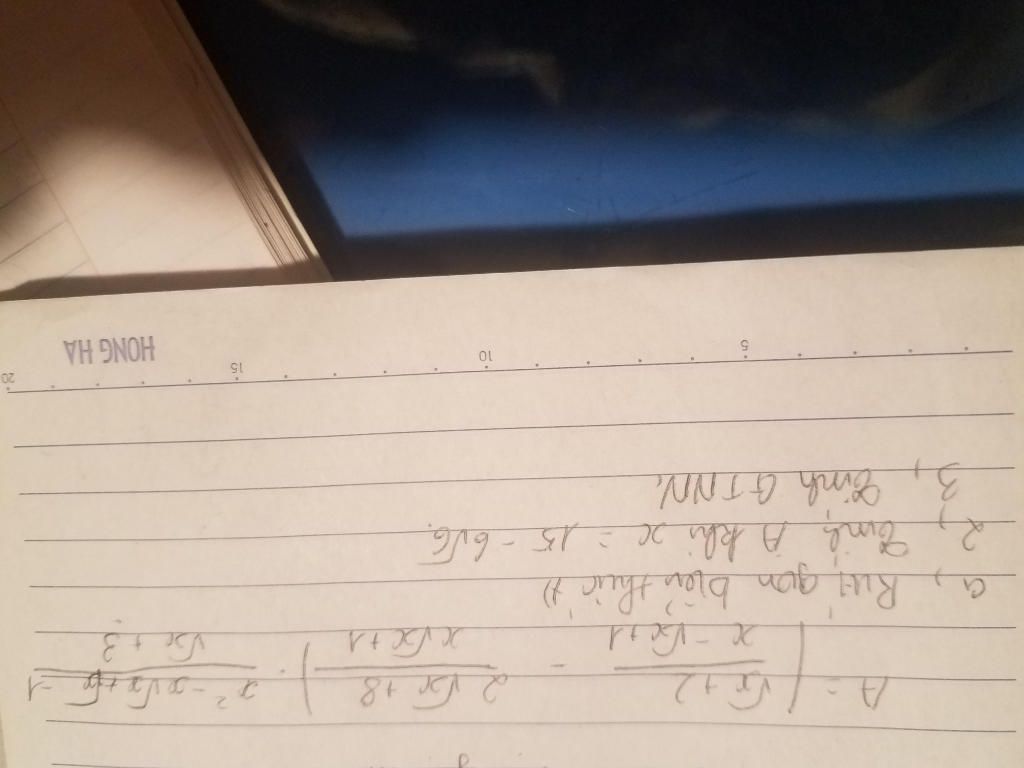 A = ( √x + 2 / x - √x + 1 - 2√x + 8 / x√x + 1 ) . x² - x√x + √x - 1 / √x + 3
a, Rút gọn biểu thức A
2, Tính A khi x = 15 - 6√6.
3, Tính GTNN.
5 10 15 20
HONG HA